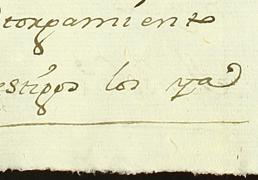 otorgamiento
estigos los ya